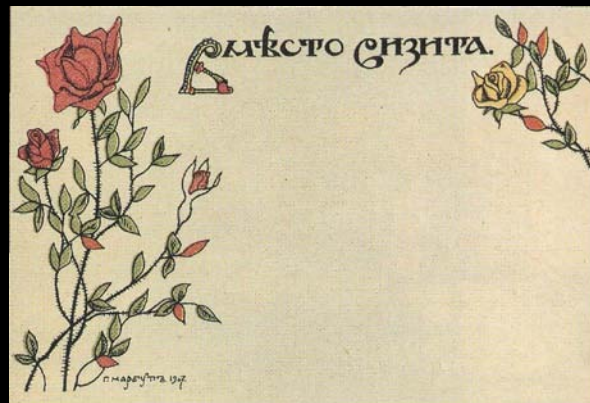 Вмѣсто визита.
Г. Нарбутъ 1907